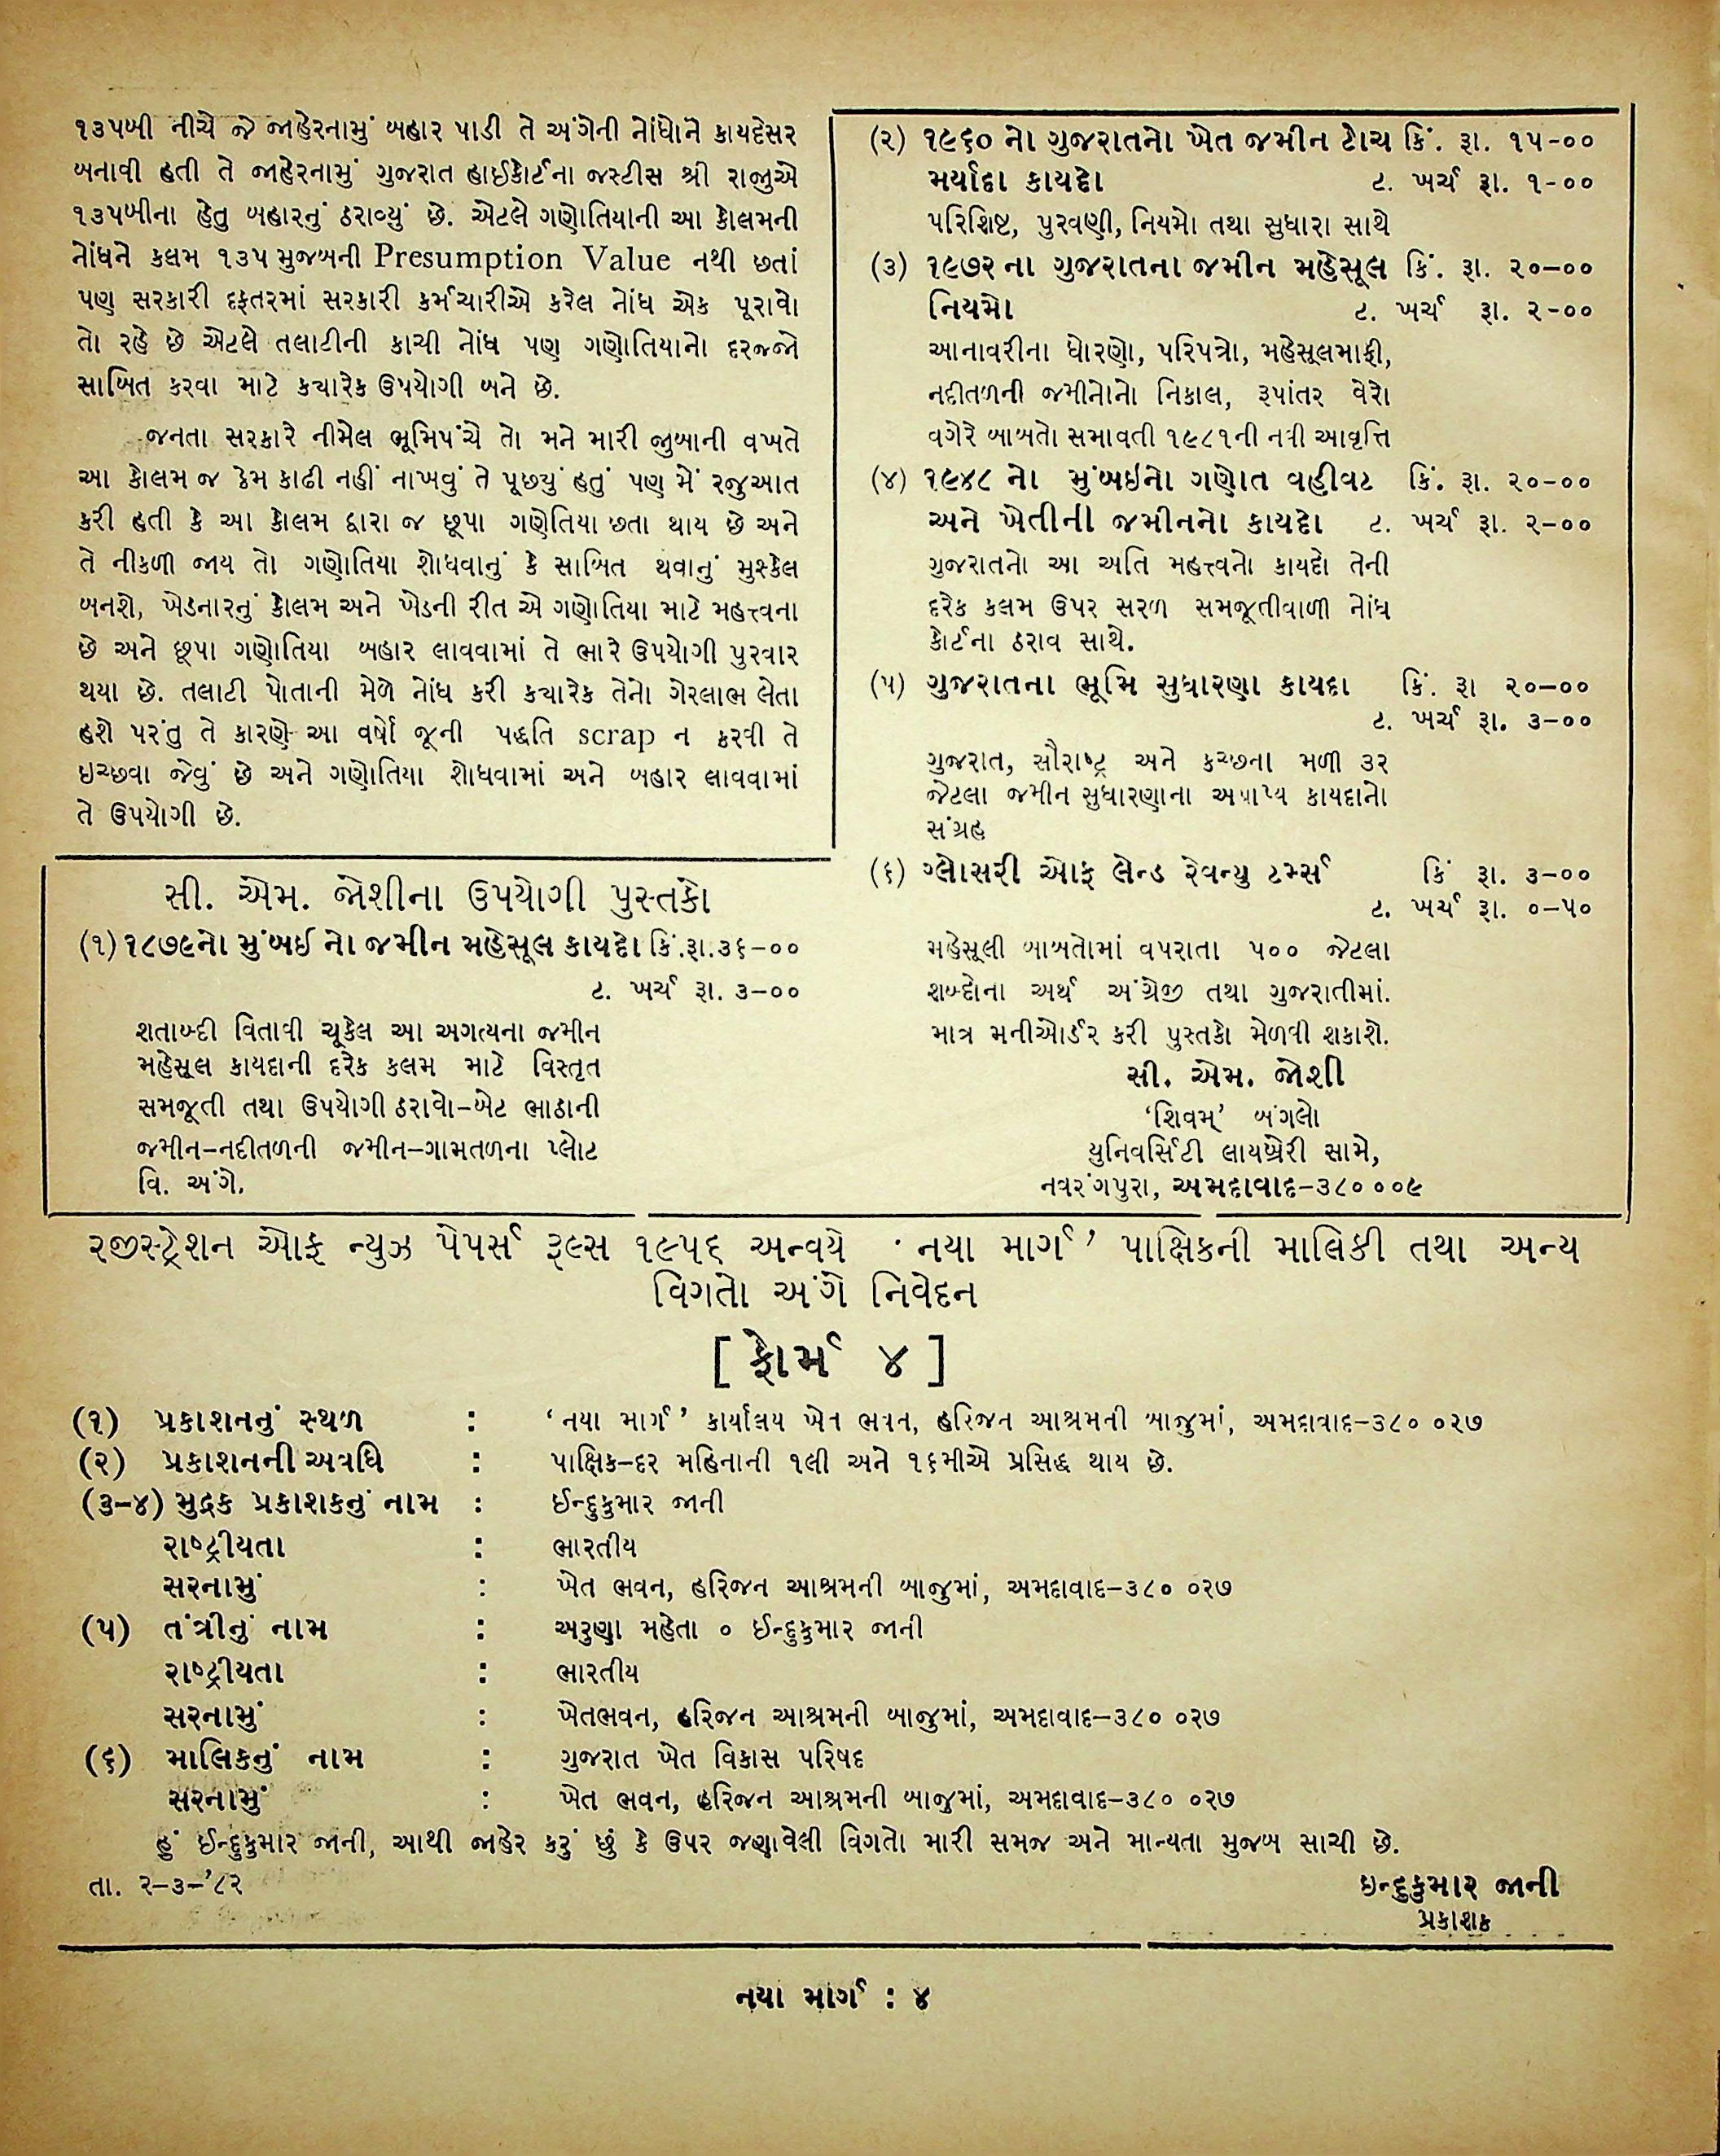 ૧૩૫બી નીચે જે જાહેરનામું બહાર પાડી તે અંગેની નોંધોને કાયદેસર
બનાવી હતી તે જાહેરનામું ગુજરાત હાઈકોર્ટના જસ્ટીસ શ્રી રાજુએ
૧૩૫બીના હેતુ બહારનું ઠરાવ્યું છે. એટલે ગણોતિયાની આ કોલમની
નોંધને કલમ ૧૩૫ મુજબની Presumption Value નથી છતાં
પણ સરકારી દફતરમાં સરકારી કર્મચારીએ કરેલ નોંધ એક પૂરાવો
તો રહે છે એટલે તલાટીની કાચી નોંધ પણ ગણોતિયાનો દરજ્જો
સાબિત કરવા માટે કયારેક ઉપયોગી બને છે.
જનતા સરકારે નીમેલ ભૂમિપંચે તો મને મારી જુબાની વખતે
આ કોલમ જ કેમ કાઢી નહીં નાખવું તે પૂછ્યું હતું પણ મેં રજુઆત
કરી હતી કે આ કોલમ દ્વારા જ છૂપા ગણેતિયા છતા થાય છે અને
તે નીકળી જાય તો ગણોતિયા શોધવાનું કે સાબિત થવાનું મુશ્કેલ
બનશે, ખેડનારનું કોલમ અને ખેડની રીત એ ગણોતિયા માટે મહત્ત્વના
છે અને છૂપા ગણોતિયા બહાર લાવવામાં તે ભારે ઉપયોગી પુરવાર
થયા છે. તલાટી પોતાની મેળે નોંધ કરી કયારેક તેનો ગેરલાભ લેતા
હશે પરંતુ તે કારણે આ વર્ષો જૂની પદ્ધતિ scrap ન કરવી તે
ઇચ્છવા જેવું છે અને ગણોતિયા શોધવામાં અને બહાર લાવવામાં
તે ઉપયોગી છે.
સી. એમ. જોશીના ઉપયોગી પુસ્તકો
(૧) ૧૮૭૯નો મુંબઈ નો જમીન મહેસૂલ કાયદો કિં.રૂા.૩૬-૦૦
ટ. ખર્ચ રૂા. ૩-૦૦
શતાબ્દી વિતાવી ચૂકેલ આ અગત્યના જમીન
મહેસૂલ કાયદાની દરેક કલમ માટે વિસ્તૃત
સમજૂતી તથા ઉપયોગી ઠરાવો-બેટ ભાઠાની
જમીન-નદીતળની જમીન-ગામતળના પ્લોટ
વિ. અંગે.
(૨) ૧૯૬૦ નો ગુજરાતનો ખેત જમીન ટોચ કિં. રૂા. ૧૫-૦૦
મર્યાદા કાયદો ટ. ખર્ચ રૂા. ૧-૦૦
પરિશિષ્ટ, પુરવણી, નિયમો તથા સુધારા સાથે
(૩) ૧૯૭૨ ના ગુજરાતના જમીન મહેસૂલ કિં. રૂા. ૨૦-૦૦
નિયમો ટ. ખર્ચ રૂા. ૨-૦૦
આનાવરીના ધોરણો, પરિપત્રો, મહેસૂલમાફી,
નદીતળની જમીનોનો નિકાલ, રૂપાંતર વેરો
વગેરે બાબતો સમાવતી ૧૯૮૧ની નવી આવૃત્તિ
(૪) ૧૯૪૮ નો મુંબઇનો ગણોત વહીવટ કિં. રૂા. ૨૦-૦૦
અને ખેતીની જમીનનો કાયદો ટ. ખર્ચ રૂા. ૨-૦૦
ગુજરાતનો આ અતિ મહત્ત્વનો કાયદો તેની
દરેક કલમ ઉપર સરળ સમજૂતીવાળી નોંધ
કોર્ટના ઠરાવ સાથે.
(૫) ગુજરાતના ભૂમિ સુધારણા કાયદા કિં. રૂા ૨૦-૦૦
ટ. ખર્ચ રૂા. ૩-૦૦
ગુજરાત, સૌરાષ્ટ્ર અને કચ્છના મળી ૩૨
જેટલા જમીન સુધારણાના અપ્રાપ્ય કાયદાનો
સંગ્રહ
(૬) ગ્લોસરી ઓફ લેન્ડ રેવન્યુ ટર્મ્સ કિં રૂા. ૩-૦૦
ટ. ખર્ચ રૂા. ૦-૫૦
મહેસૂલી બાબતોમાં વપરાતા ૫૦૦ જેટલા
શબ્દોના અર્થ અંગ્રેજી તથા ગુજરાતીમાં.
માત્ર મનીઓર્ડર કરી પુસ્તકો મેળવી શકાશે.
સી. એમ. જોશી
‘શિવમ્’ બંગલો
યુનિવર્સિટી લાયબ્રેરી સામે,
નવરંગપુરા, અમદાવાદ-૩૮૦૦૦૯
રજીસ્ટ્રેશન ઓફ ન્યુઝ પેપર્સ રૂલ્સ ૧૯૫૬ અન્વયે ‘નયા માર્ગ’ પાક્ષિકની માલિકી તથા અન્ય
વિગતો અંગે નિવેદન
[ ફોર્મ ૪ ]
(૧) પ્રકાશનનું સ્થળ : ‘નયા માર્ગ’ કાર્યાલય ખેત ભવન, હરિજન આશ્રમની બાજુમાં, અમદાવાદ-૩૮૦ ૦૨૭
(૨) પ્રકાશનની અવધિ : પાક્ષિક-દર મહિનાની ૧લી અને ૧૬મીએ પ્રસિદ્ધ થાય છે.
(૩-૪) મુદ્રક પ્રકાશકનું નામ : ઈન્દુકુમાર જાની
રાષ્ટ્રીયતા : ભારતીય
સરનામું : ખેત ભવન, હરિજન આશ્રમની બાજુમાં, અમદાવાદ-૩૮૦ ૦૨૭
(૫) તંત્રીનું નામ : અરુણા મહેતા ૦ ઈન્દુકુમાર જાની
રાષ્ટ્રીયતા : ભારતીય
સરનામું : ખેતભવન, હરિજન આશ્રમની બાજુમાં, અમદાવાદ-૩૮૦ ૦૨૭
(૬) માલિકનું નામ : ગુજરાત ખેત વિકાસ પરિષદ
સરનામું : ખેત ભવન, હરિજન આશ્રમની બાજુમાં, અમદાવાદ-૩૮૦ ૦૨૭
હું ઈન્દુકુમાર જાની, આથી જાહેર કરું છું કે ઉપર જણાવેલી વિગતો મારી સમજ અને માન્યતા મુજબ સાચી છે.
તા. ૨-૩-’૮૨ ઇન્દુકુમાર જાની
પ્રકાશક
નયા માર્ગ : ૪